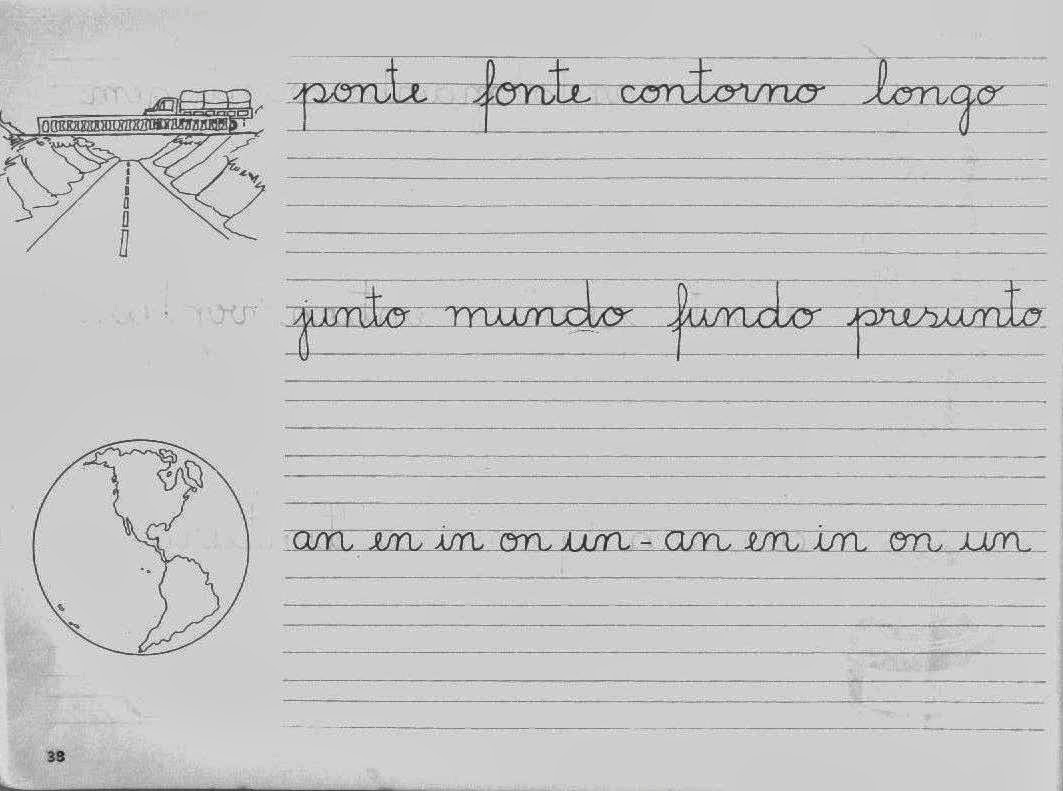 ponte fonte contorno longo
junto mundo fundo presunto
an en in on un - an en in on un
38